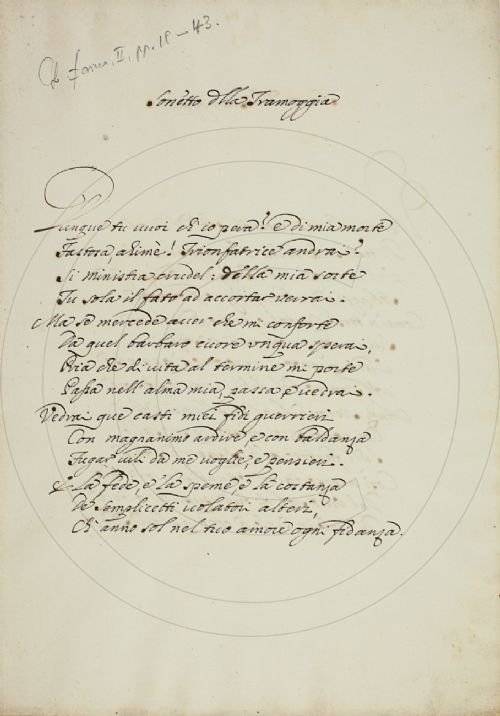 II, pp. 18-43.
Sonetto della Tramoggia
Dunque tu vuoi ch'io pera? e di mia morte
Fastosa ahimè! Trionfatrice andrai?
Si ministra crudel: della mia sorte
Tu sola il fato ad accortar verrai.
Ma se mercede aver che mi conforte
Da quel barbaro cuore unqua sperai,
Pria che di vita al termine mi porte
Passa nell'alma mia, passa e vedrai.
Vedrai que casti miei fidi guerrieri
Con magnanimo ardire, e con baldanza
Fugar vili da me voglie, e pensieri.
La fede, e la speme, e la costanza
De semplicetti violatori alteri,
Ch'anno sol nel tuo amore ogni fidanza.